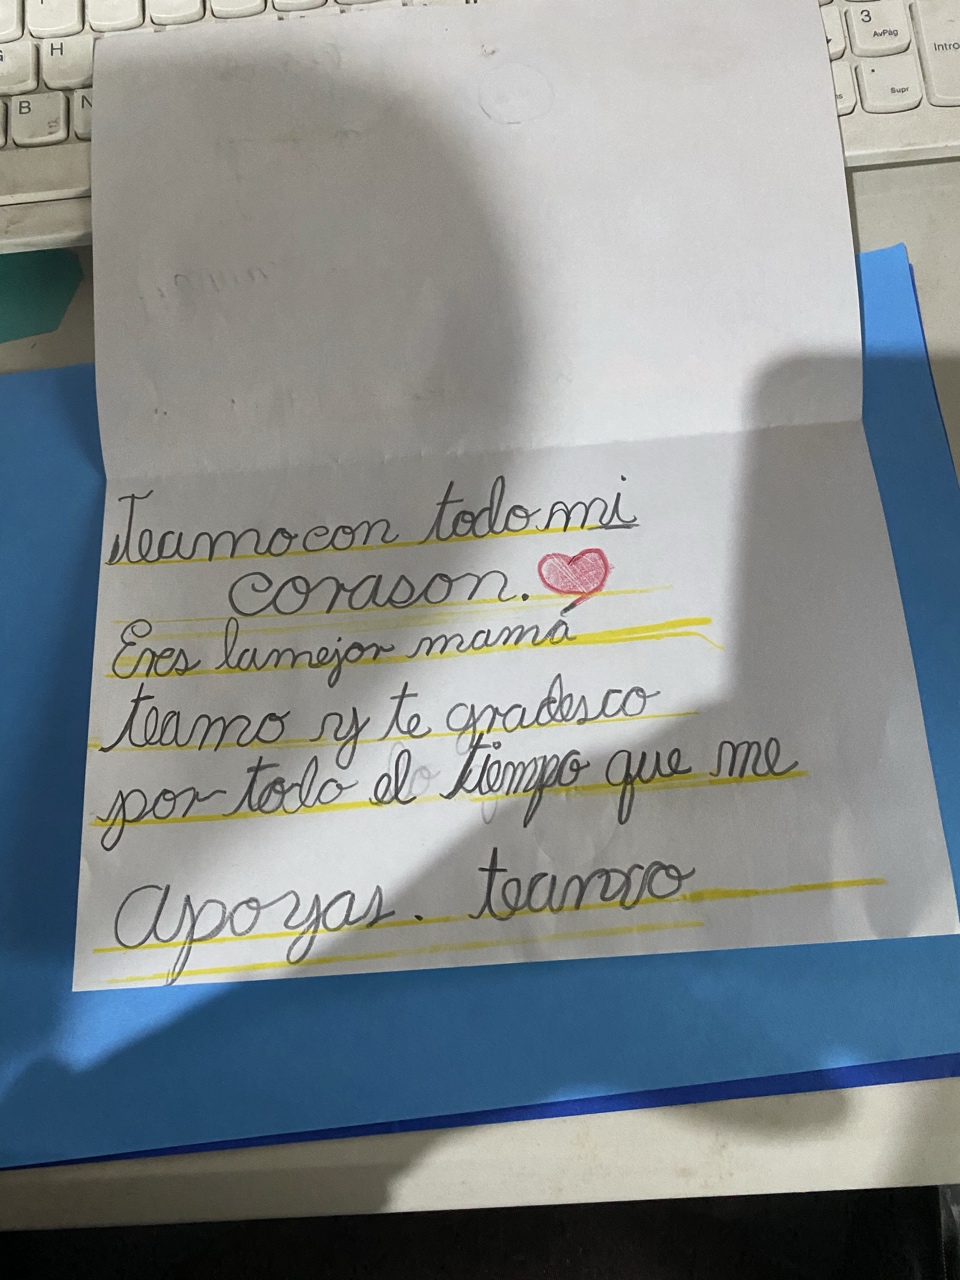 H
B
N
3
AvPág
Intro
.
Supr
Teamo con todo mi
corason.
Eres lamejor mamá
teamo y te gradesco
por todo el tiempo que me
apoyas. teamo